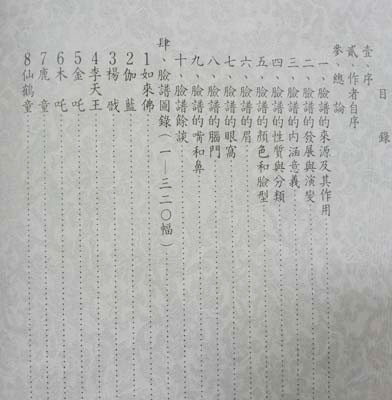 目錄
壹、序
貳、作者自序
參、總論
一、臉譜的來源及其作用
二、臉譜的發展與演變
三、臉譜的內涵意義
四、臉譜的性質與分類
五、臉譜的顏色和臉型
六、臉譜的眉
七、臉譜的眼窩
八、臉譜的腦門
九、臉譜的嘴和鼻
十、臉譜餘談
肆、臉譜圖錄(一—三二〇幅)
1如來佛
2伽藍
3楊戩
4李天王
5金吒
6木吒
7鹿童
8仙鶴童